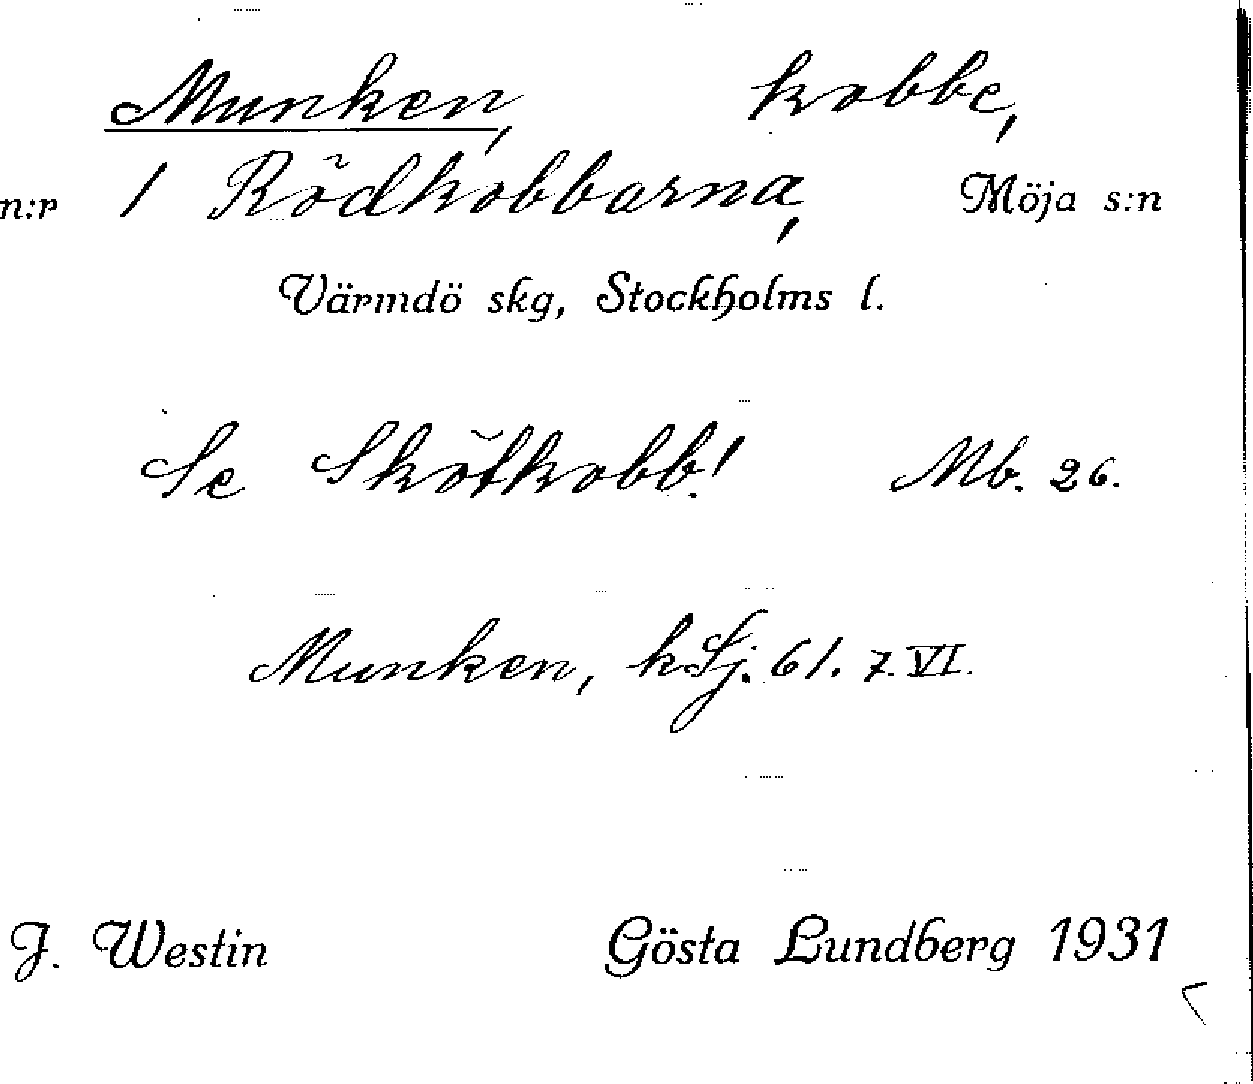 Munken, kobbe,
n:r 1 Rödkobbarna, Möja s:n
Värmdö skg, Stockholms l.
Se Skötkobb! Mb. 26.
Munken, k Sj. 61. 7.VI.
J. Westin Gösta Lundberg 1931